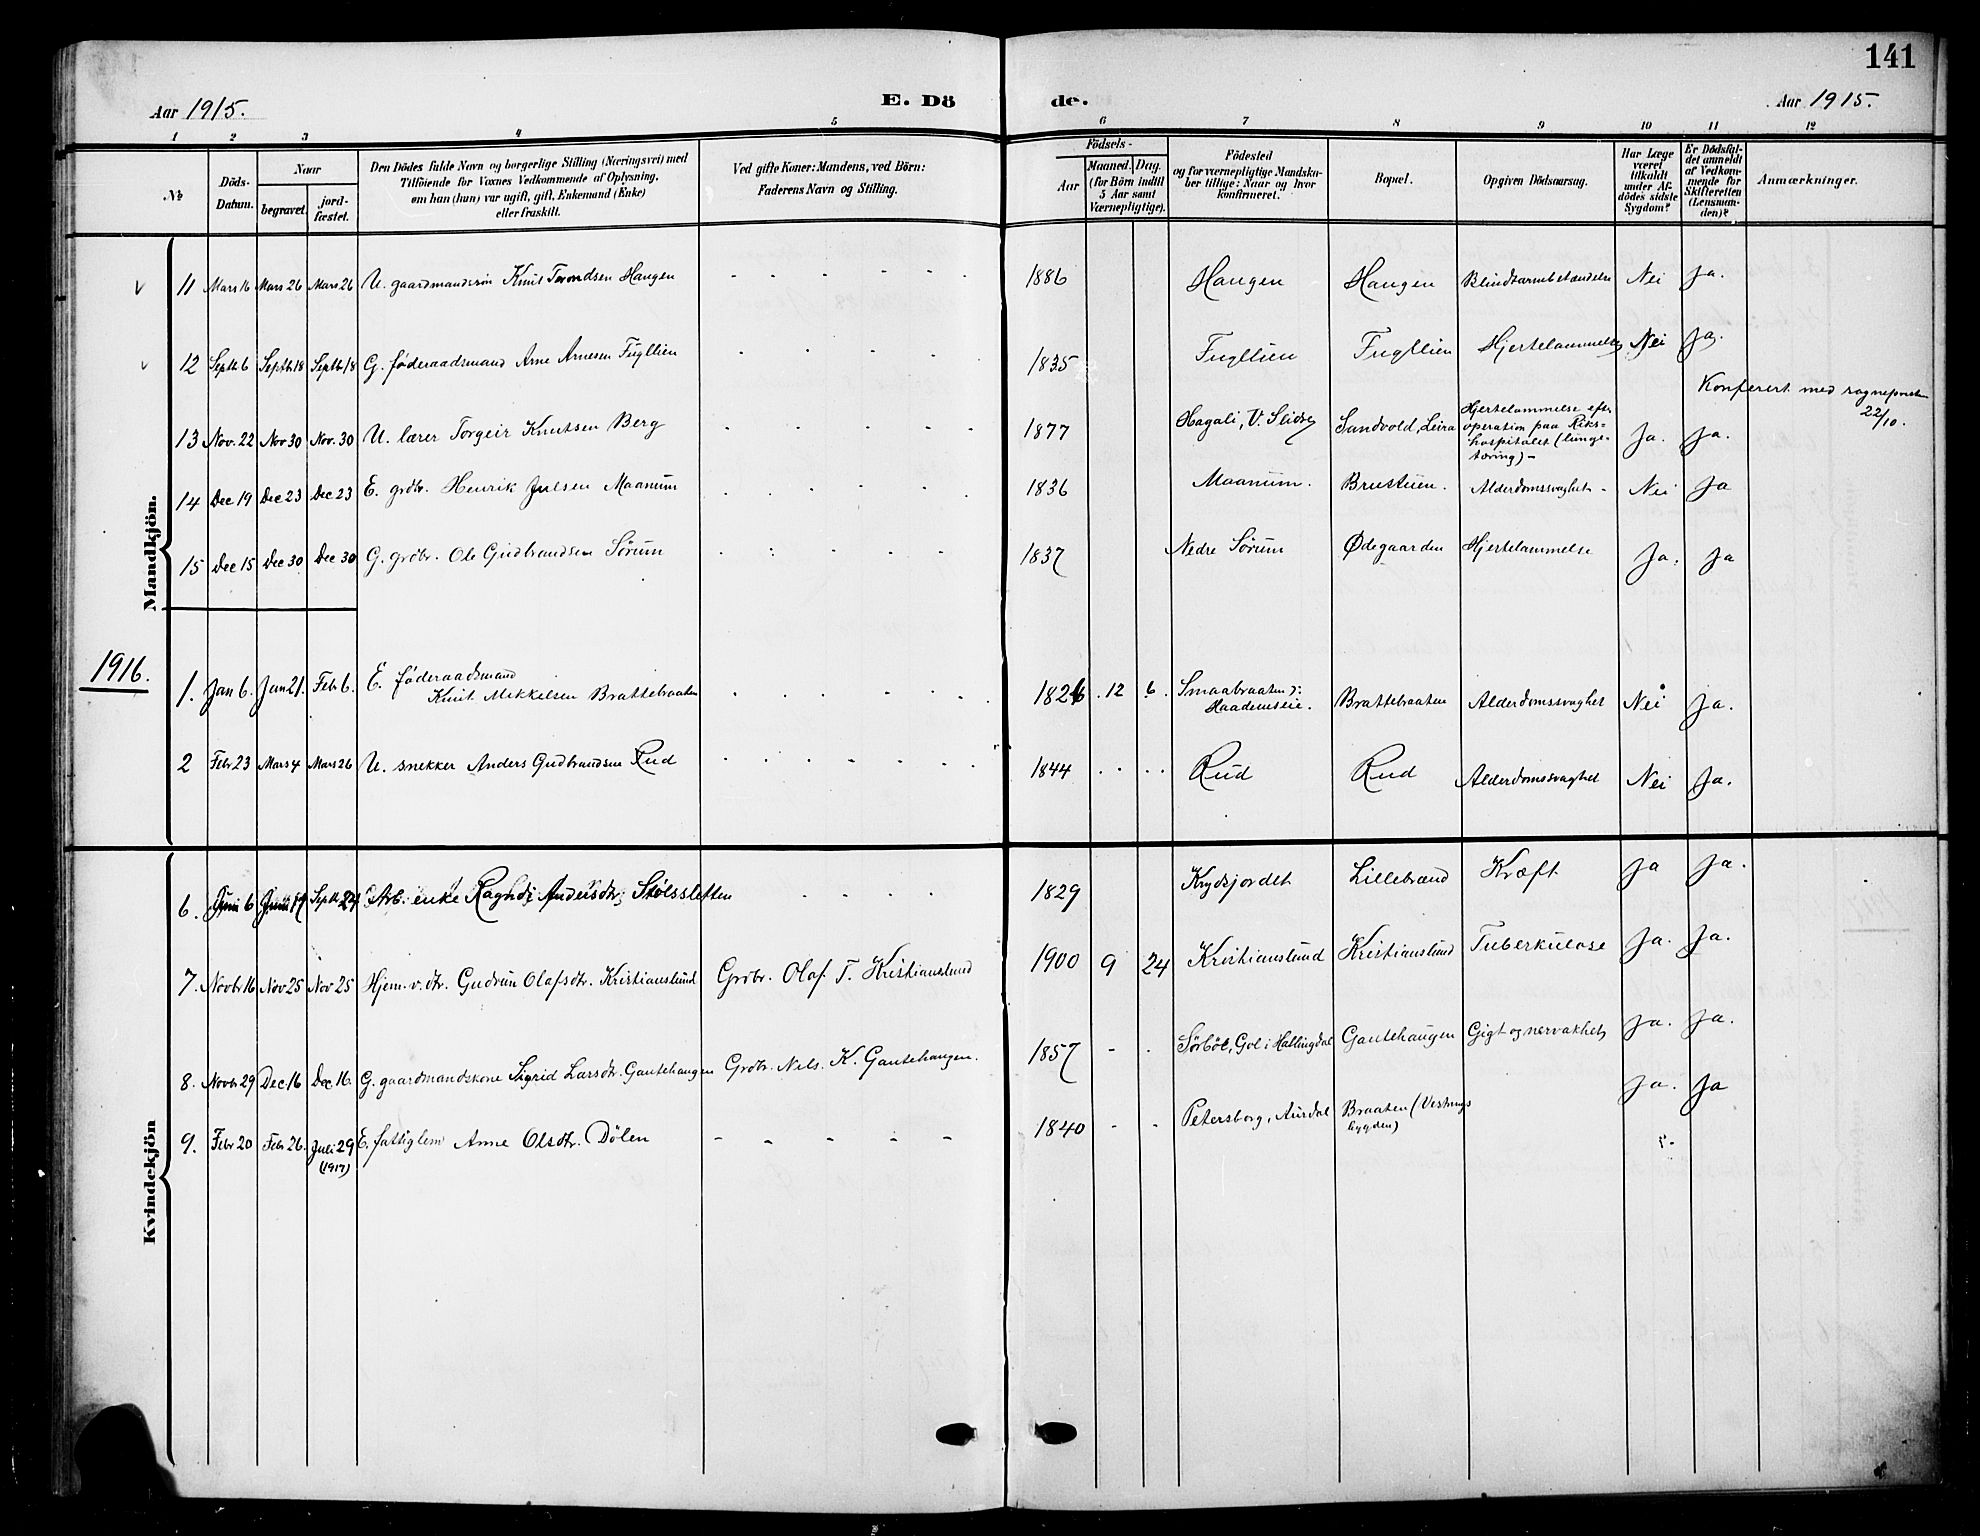 141
Aar 1915.
E. Dö
de.
Aar 1915.
1 2 3 4 5 6 7 8 9 10 11 12
№
Döds-
Datum.
Naar
begravet.
jord-
fæstet.
Den Dödes fulde Navn og borgerlige Stilling (Næringsvei) med
Tilföiende for Voxnes Vedkommende af Oplysning,
om han (hun) var ugift, gift, Enkemand (Enke)
eller fraskilt.
Ved gifte Koner: Mandens, ved Börn:
Faderens Navn og Stilling.
Födsels-
Aar
Maaned. Dag.
(for Börn indtil
5 Aar samt
Værnepligtige).
Födested
og for værnepligtige Mandska-
ber tillige: Naar og hvor
konfirmeret.
Bopæl.
Opgiven Dödsaarsag.
Har Læge
været
tilkaldt
under Af-
dödes sidste
Sygdom?
Er Dödsfal-
det anmeldt
af Vedkom-
mende for
Skifteretten
(Lensman-
den)?
Anmærkninger.
Mandkjön.
11 Mars 16 Mars 26 Mars 26 U. gaardmandssön Knut Trondsen Haugen - - - - - - 1886 Haugen Haugen Blindtarmbetændelse Nei Ja.
12 Septb 6 Septb 18 Septb 18 G. føderaadsmand Arne Arnesen Fugllien - - - - - 1835 Fugllien Fugllien Hjertelammelse Nei Ja.
Konferert med sognepresten
22/10.
13 Nov. 22 Nov 30 Nov. 30 U. lærer Torgeir Knutsen Berg - - - - - - 1877 Hagali, V. Slidre Sandvold, Leira Hjertelammelse efter
operation paa Riks=
hospitalet (lunge-
tæring) - Ja. Ja.
14 Dec 19 Dec 23 Dec 23 E. grdbr. Henrik Julsen Maanum - - - - - - 1836 Maanum. Brustuen. Alderdomssvaghet - Nei Ja
15 Dec 15 Dec 30 Dec 30 G. grdbr. Ole Gudbrandsen Sørum - - - - - 1837 Nedre Sørum Ødegaarden Hjertelammelse Ja. Ja
1916.
1. Jan 6. Jan 21. Feb. 6. E. føderaadsmand
Knut Mikkelsen Brattebraaten - - - - - - 1826 . 12 6. Smaabraaten
Haademseie. Brattebraaten Alderdomssvaghet Nei Ja.
2 Febr 23 Mars 4 Mars 26 U. snekker Anders Gudbrandsen Rud - - - - - - 1844 . . . . Rud Rud Alderdomssvaghet Nei Ja.
Kvindekjön
6. Juni 6 Juni 19 Septb 24 Arb. enke Ragndi Andersdtr. Stølssletten - - - - 1829 Krydsjordet Lillebrænd Kræft Ja Ja.
7. Novbr 16 Nov 25 Nov 25 Hjem. v. dtr. Gudrun Olafsdtr. Kristianslund Grdbr. Olaf T. Kristianslund 1900 9 24 Kristianslund Kristianslund Tuberkulose Ja. Ja.
8. Novbr 29 Dec 16 Dec 16. G. gaardmandskone Sigrid Larsdtr. Gautehaugen Grdbr. Nels. K. Gautehaugen. 1857 - - Sørbøl, Gol i Hallingdal Gautehaugen Gigt og nervakhet Ja. Ja.
9. Febr 20 Febr 26. Juli 29
(1917) E. fattiglem Anne Olsdtr. Dölen - - - - - 1840 - - Petersborg, Aurdal Braaten (Vestrings
bygden) Ja. Ja
?-